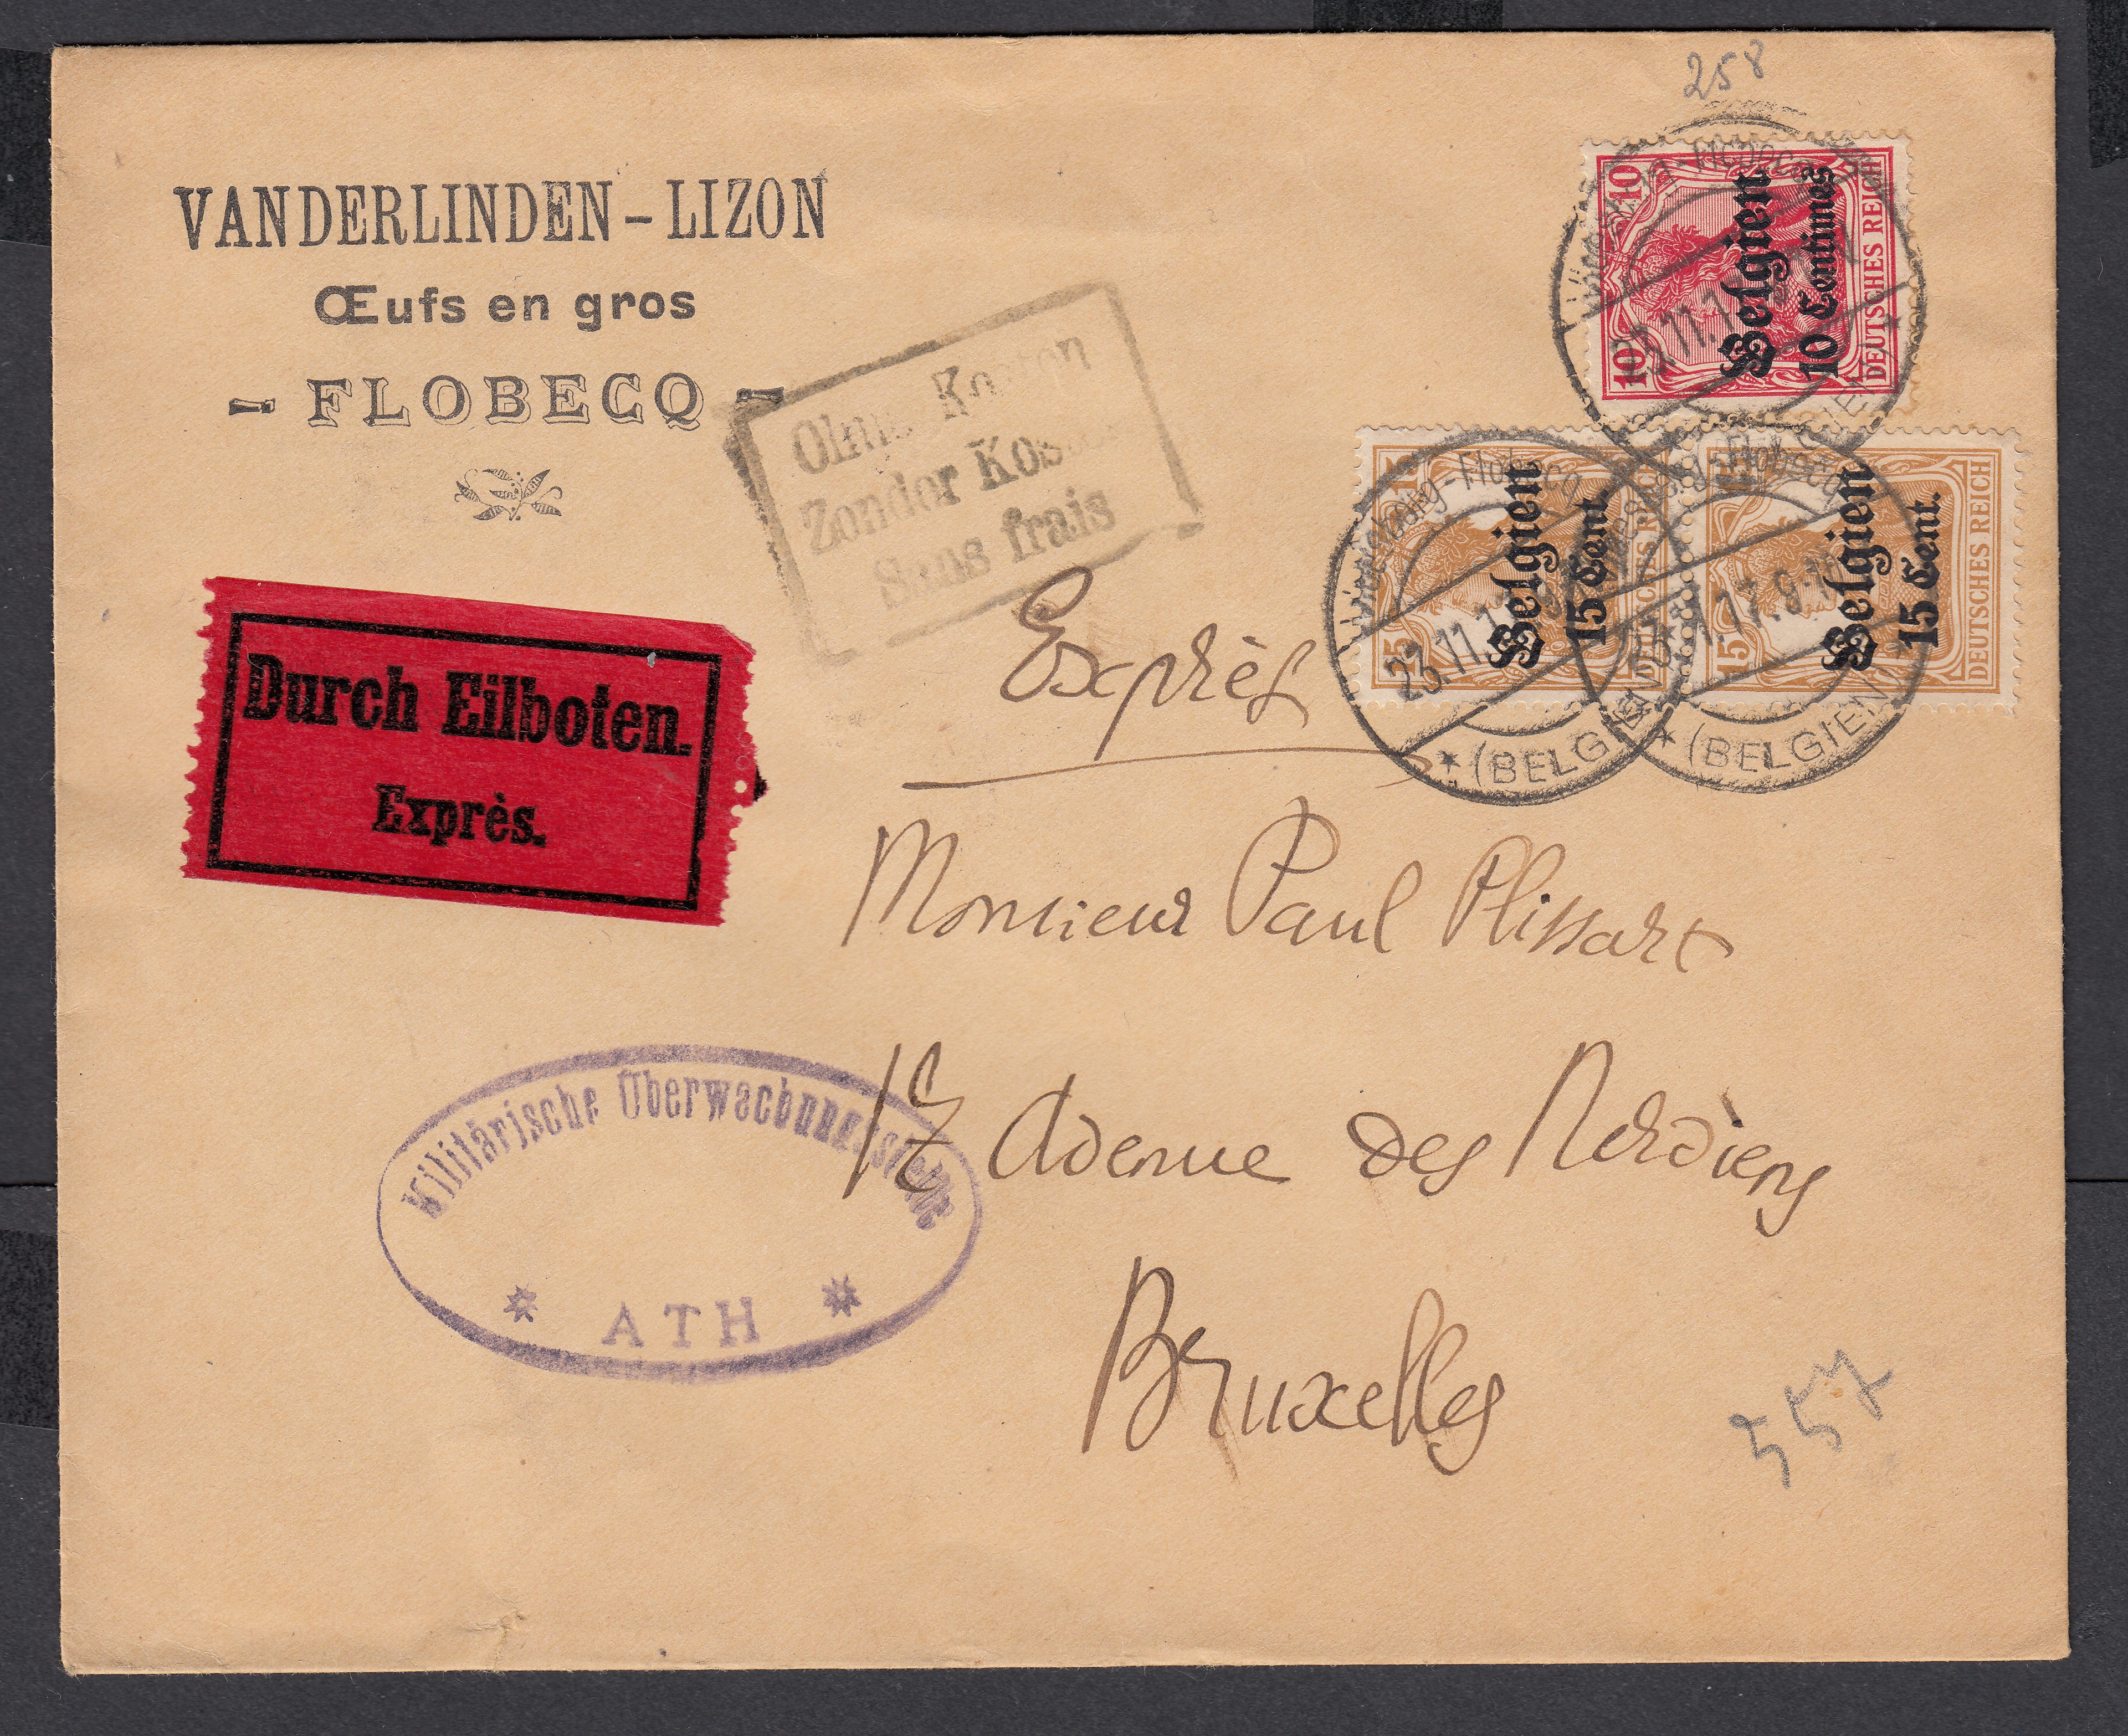 258
VANDERLINDEN-LIZON
Œufs en gros
- FLOBECQ -
Ohne Kosten
Zonder Kos
Sans frais
10 10
Belgien
10 Centimes
DEUTSCHES REICH
15 15
Belgien
15 Cent.
DEUTSCHES REICH
15
Belgien
15 Cent.
DEUTSCHES REICH
Flobecq
23.11.17
(BELGIEN)
Flobecq
(BELGIEN)
Exprès
Durch Eilboten.
Exprès.
Monsieur Paul Plissart
17 Avenue des Nerviens
Bruxelles
Militärische Überwachungsstelle
* ATH *
557